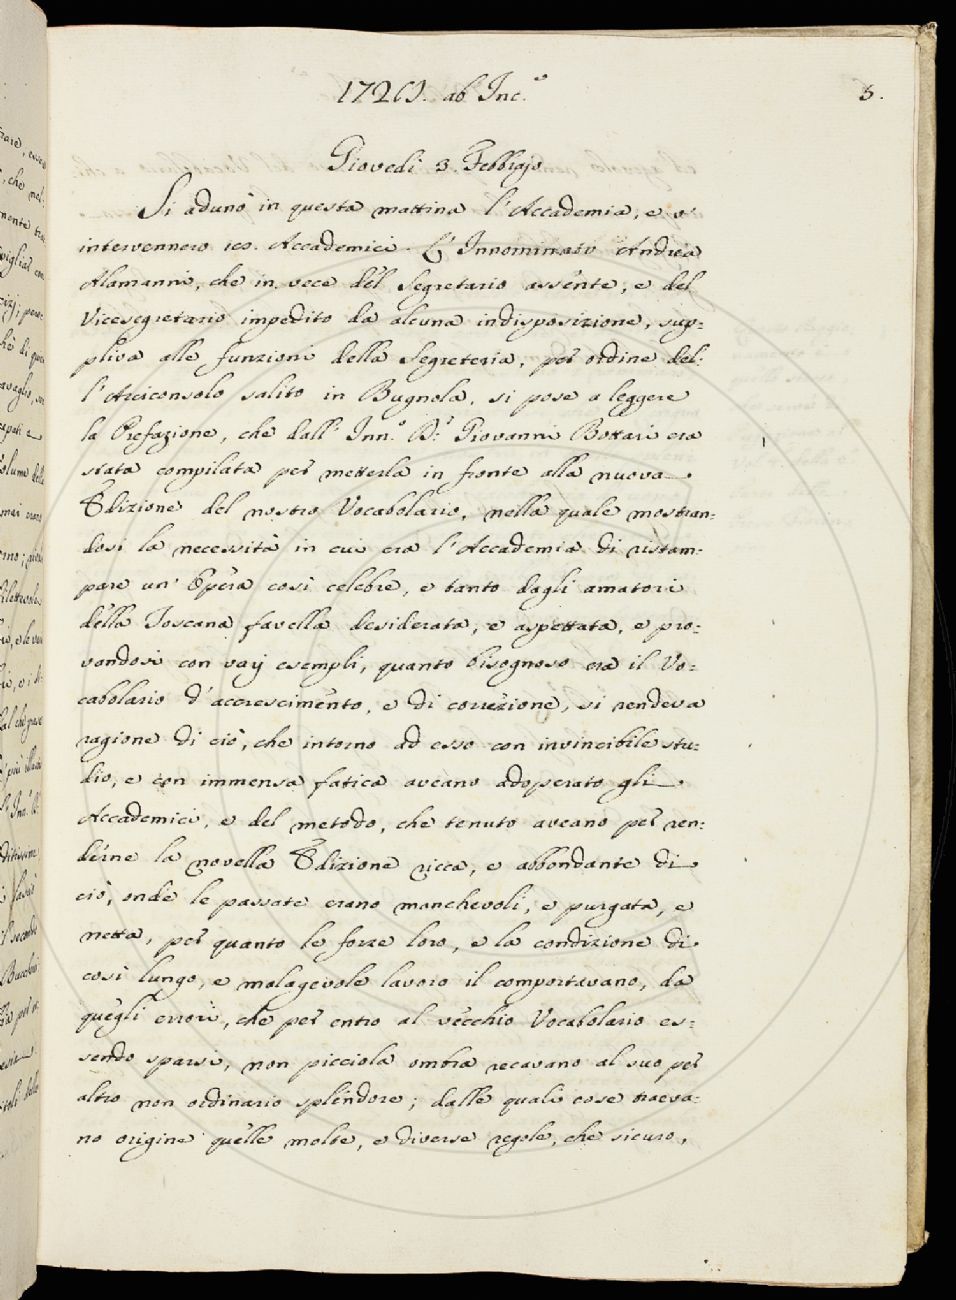 1728. ab Inc.º
5.
Giovedì 3. Febbrajo
Si adunò in questa mattina l'Accademia, e v'
intervennero 10. Accademici. L'Innominato Andrea
Alamanni, che in vece del Segretario assente, e del
Vicesegretario impedito da alcuna indisposizione, sup=
pliva alle funzioni della Segreteria, per ordine del=
l'Arciconsolo salito in Bugnola, si pose a leggere
la Prefazione, che dall' Inn.º D.r Giovanni Bottari era
stata compilata per metterla in fronte alla nuova
Edizione del nostro Vocabolario, nella quale mostran=
dosi la necessità in cui era l'Accademia di ristam=
pare un' Opera così celebre, e tanto dagli amatori
della Toscana favella desiderata, e aspettata, e pro=
vandosi con varj esempli, quanto bisognoso era il Vo=
cabolario d'accrescimento, e di correzione, si rendeva
ragione di ciò, che intorno ad esso con invincibile stu=
dio, e con immensa fatica aveano adoperato gli
Accademici, e del metodo, che tenuto aveano per ren=
derne la novella Edizione ricca, e abbondante di
ciò, onde le passate erano manchevoli, e purgata, e
netta, per quanto le forze loro, e la condizione di
così lungo, e malagevole lavoro il comportavano, da
quegli errori, che per entro al vecchio Vocabolario es=
sendo sparsi, non picciola ombra recavano al suo per
altro non ordinario splendore; dalle quali cose traeva=
no origine quelle molte, e diverse regole, che sicuro,